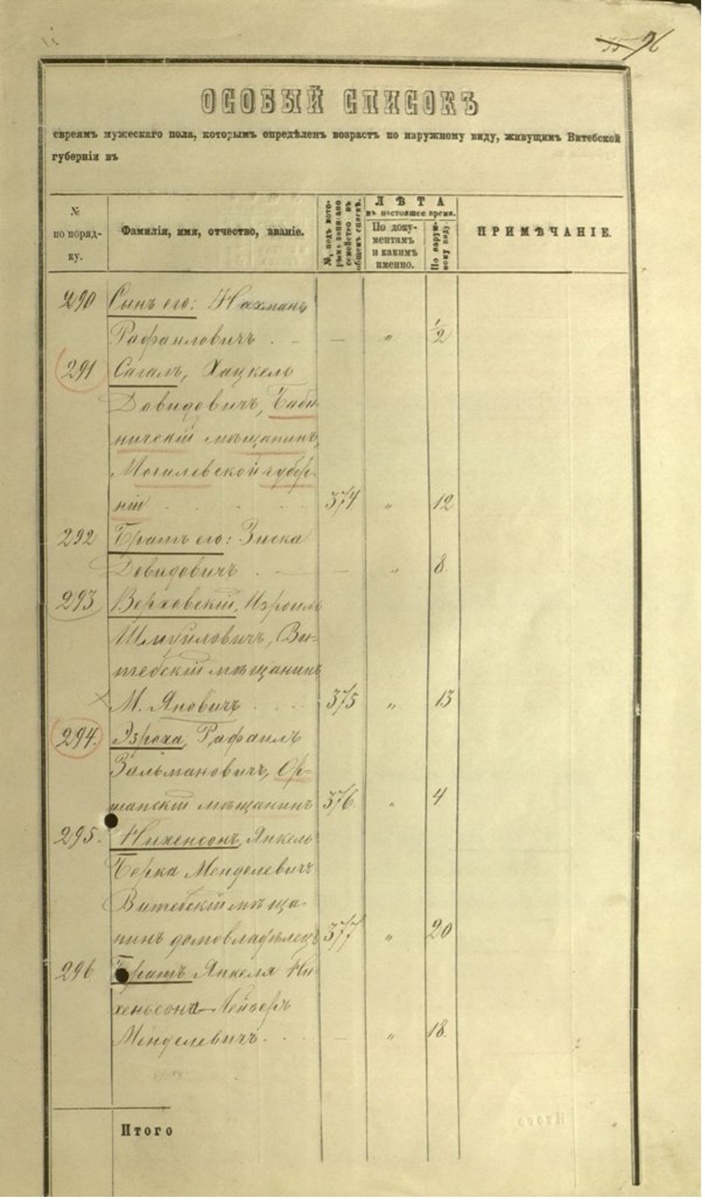 96
ОСОБЫЙ СПИСОКЪ
евреямъ мужескаго пола, которымъ опредѣленъ возрастъ по наружному виду, живущимъ Витебской
губерніи въ
№
по поряд-
ку.
Фамилія, имя, отчество, званіе.
№, подъ кото-
рымъ записано
семейство въ
общемъ спискѣ.
ЛѢТА
въ настоящее время.
По доку-
ментамъ
и какимъ
именно.
По наруж-
ному виду
ПРИМѢЧАНІЕ.
290 Сынъ его: Нахманъ
Рафаиловичъ . - — „ 1/2
291 Сагалъ, Хацкель
Довидовичъ, Баби-
ническій мѣщанинъ,
Могилевской губер-
ніи . . . . 374 „ 12
292 Братъ его: Зиска
Довидовичъ . — — „ 8.
293 Верховскій, Израиль
Шмуиловичъ, Ви-
тебскій мѣщанинъ
М. Яновичъ . . . . 375 „ 13
294. Эзроха, Рафаилъ
Залмановичъ, Ор-
шанскій мѣщанинъ 376. „ 4
295. Нихенсонъ, Янкель-
Берка Менделевичъ
Витебскій мѣща-
нинъ домовладѣлецъ 377 „ 20
296 Братъ Янкеля Ни-
хеньсона Лейзеръ
Менделевичъ . . . — „ 18.
Итого